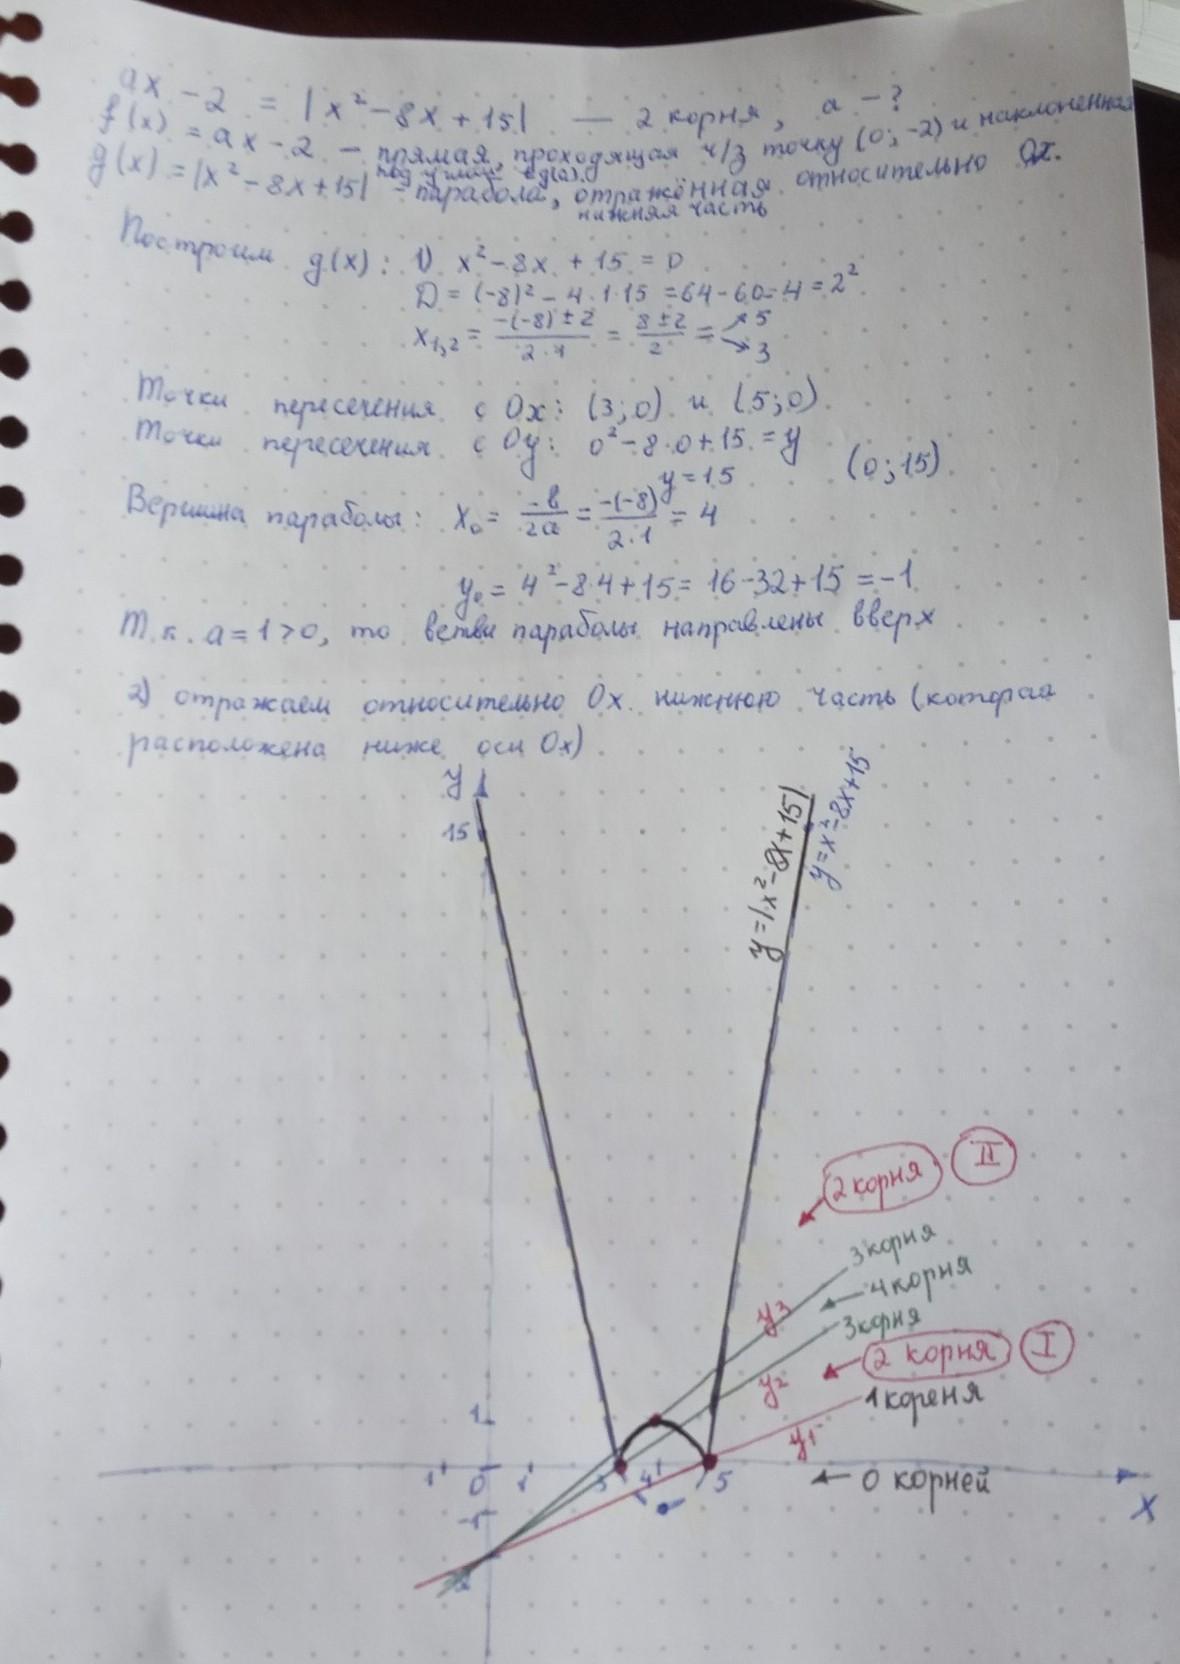 ax - 2 = |x² - 8x + 15| — 2 корня, a - ?
f(x) = ax - 2 - прямая, проходящая ч/з точку (0; -2) и наклоненная
под углом tg(a).
g(x) = |x² - 8x + 15| - парабола, отражённая относительно Ox.
нижняя часть
Построим g(x): 1) x² - 8x + 15 = 0
D = (-8)² - 4·1·15 = 64 - 60 = 4 = 2²
x₁,₂ = -(-8) ± 2 / 2·1 = 8 ± 2 / 2 = ↗ 5 ↘ 3
Точки пересечения с Ox: (3; 0) и (5; 0)
Точки пересечения с Oy: 0² - 8·0 + 15 = y (0; 15)
y = 15
Вершина параболы: x₀ = -b / 2a = -(-8) / 2·1 = 4
y₀ = 4² - 8·4 + 15 = 16 - 32 + 15 = -1
Т.к. a = 1 > 0, то ветви параболы направлены вверх
2) отражаем относительно Ox нижнюю часть (которая
расположена ниже оси Ox)
y
15
y = |x² - 8x + 15|
y = x² - 8x + 15
2 корня II
3 корня
y3
4 корня
3 корня
2 корня I
y2
1 кореня
y1
1
1 0 1 3 4 5
0 корней
x
-1
-2